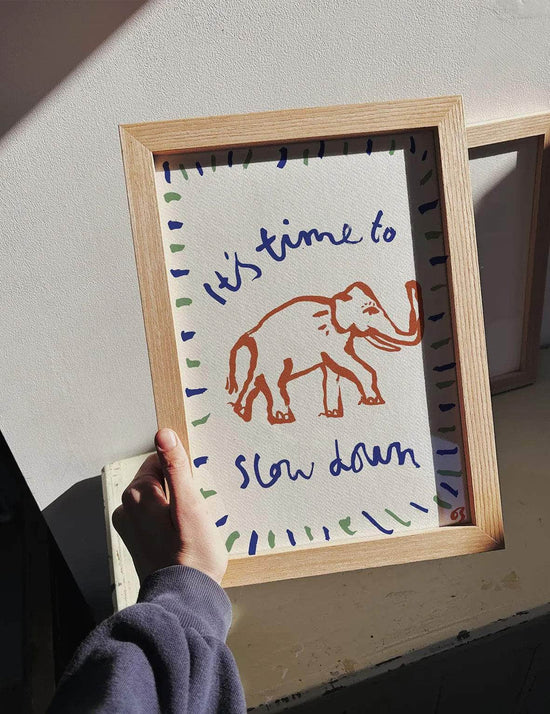 It's time to
slow down